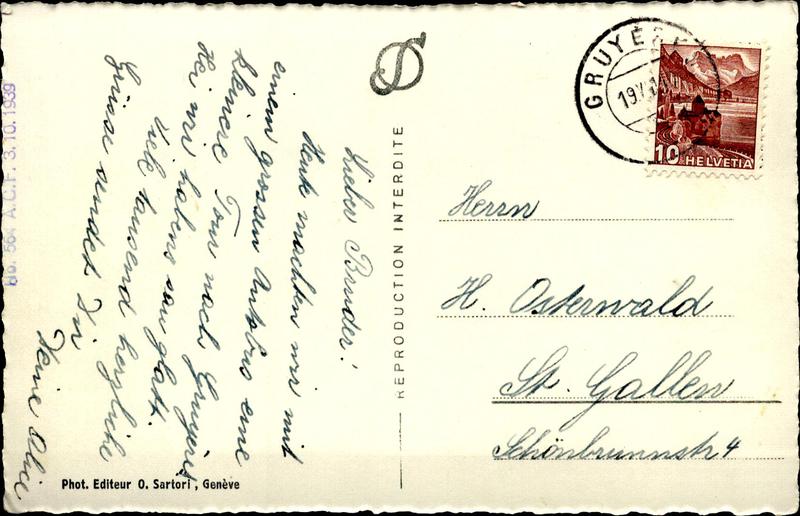 Lieber Bruder!
Heute machten wir mit
einem grossen Autobus eine
kleinere Tour nach Gruyères
Hei wir habens sau glatt.
Viele tausend herzliche
Grüsse sendet Dir
Deine Alice
No. 564 A.C.F. 3.10.1939
Phot. Editeur O. Sartori, Genève
REPRODUCTION INTERDITE
GRUYÈRES
10 HELVETIA
Herrn
H. Osterwald
St. Gallen
Schönbrunnstr 4